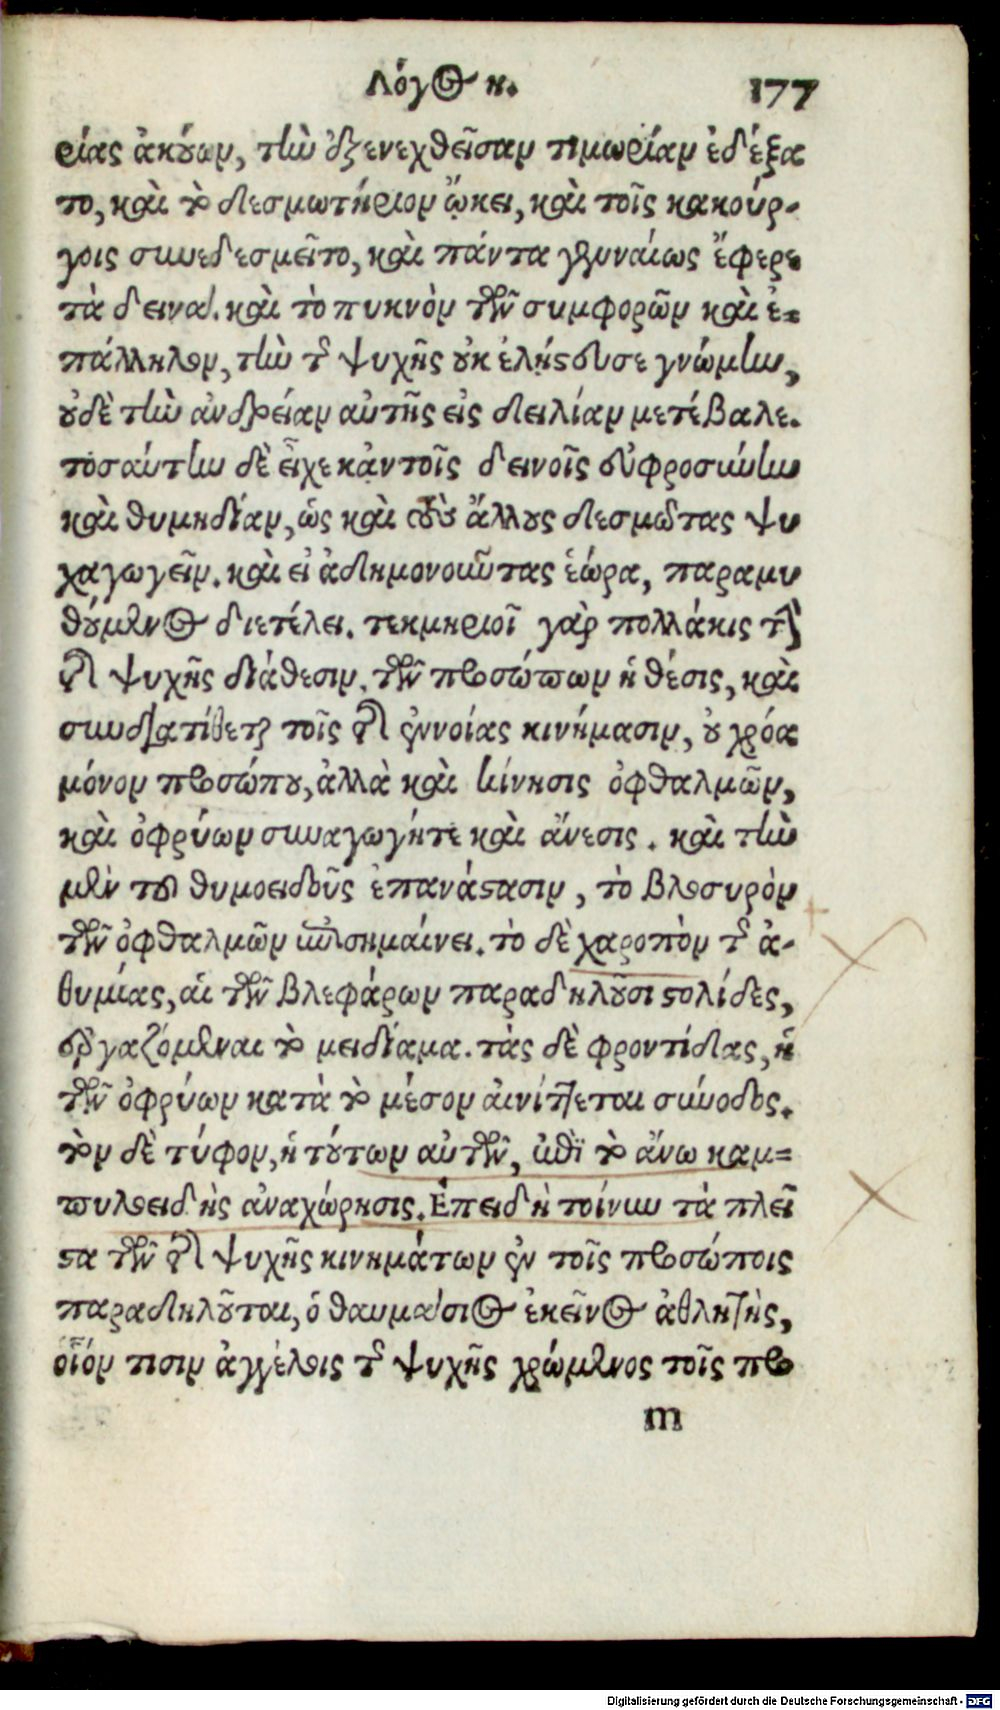 Λόγος η. 177
ρίας ἀκούων, τὴν ἐξενεχθεῖσαν τιμωρίαν ἐδέξα
το, καὶ τὸ δεσμωτήριον ᾤκει, καὶ τοῖς κακούρ-
γοις συνεδεσμεῖτο, καὶ πάντα γενναίως ἔφερε
τὰ δεινά. καὶ τὸ πυκνὸν τῶν συμφορῶν καὶ ἐ-
πάλληλον, τὴν τῆς ψυχῆς οὐκ ἐλῄστευσε γνώμην,
οὐδὲ τὴν ἀνδρείαν αὐτῆς εἰς δειλίαν μετέβαλε.
τοσαύτην δὲ εἶχε κἀν τοῖς δεινοῖς εὐφροσύνην
καὶ θυμηδίαν, ὡς καὶ τοὺς ἄλλους δεσμώτας ψυ
χαγωγεῖν. καὶ εἰ ἀδημονοῦντας ἑώρα, παραμυ
θούμενος διετέλει. τεκμηριοῖ γὰρ πολλάκις τὴν
τῆς ψυχῆς διάθεσιν, τῶν προσώπων ἡ θέσις, καὶ
συνδιατίθεται τοῖς τῆς ἐννοίας κινήμασιν, οὐ χρόα
μόνον προσώπου, ἀλλὰ καὶ κίνησις ὀφθαλμῶν,
καὶ ὀφρύων συναγωγήτε καὶ ἄνεσις. καὶ τὴν
μὲν τοῦ θυμοειδοῦς ἐπανάστασιν, τὸ βλοσυρὸν
τῶν ὀφθαλμῶν ὑποσημαίνει. τὸ δὲ χαροπὸν τῆς ἀ-
θυμίας, αἱ τῶν βλεφάρων παραδηλοῦσι στολίδες,
ἐργαζόμεναι τὸ μειδίαμα. τὰς δὲ φροντίδας, ἡ
τῶν ὀφρύων κατὰ τὸ μέσον αἰνίττεται σύνοδος.
τὸν δὲ τύφον, ἡ τούτων αὐτῶν, ἐπὶ τὸ ἄνω καμ=
πυλοειδὴς ἀναχώρησις. Ἐπειδὴ τοίνυν τὰ πλεῖ
στα τῶν τῆς ψυχῆς κινημάτων ἐν τοῖς προσώποις
παραδηλοῦται, ὁ θαυμάσιος ἐκεῖνος ἀθλητὴς,
οἷόν τισιν ἀγγέλοις τῆς ψυχῆς χρώμενος τοῖς προ
m
Digitalisierung gefördert durch die Deutsche Forschungsgemeinschaft - DFG